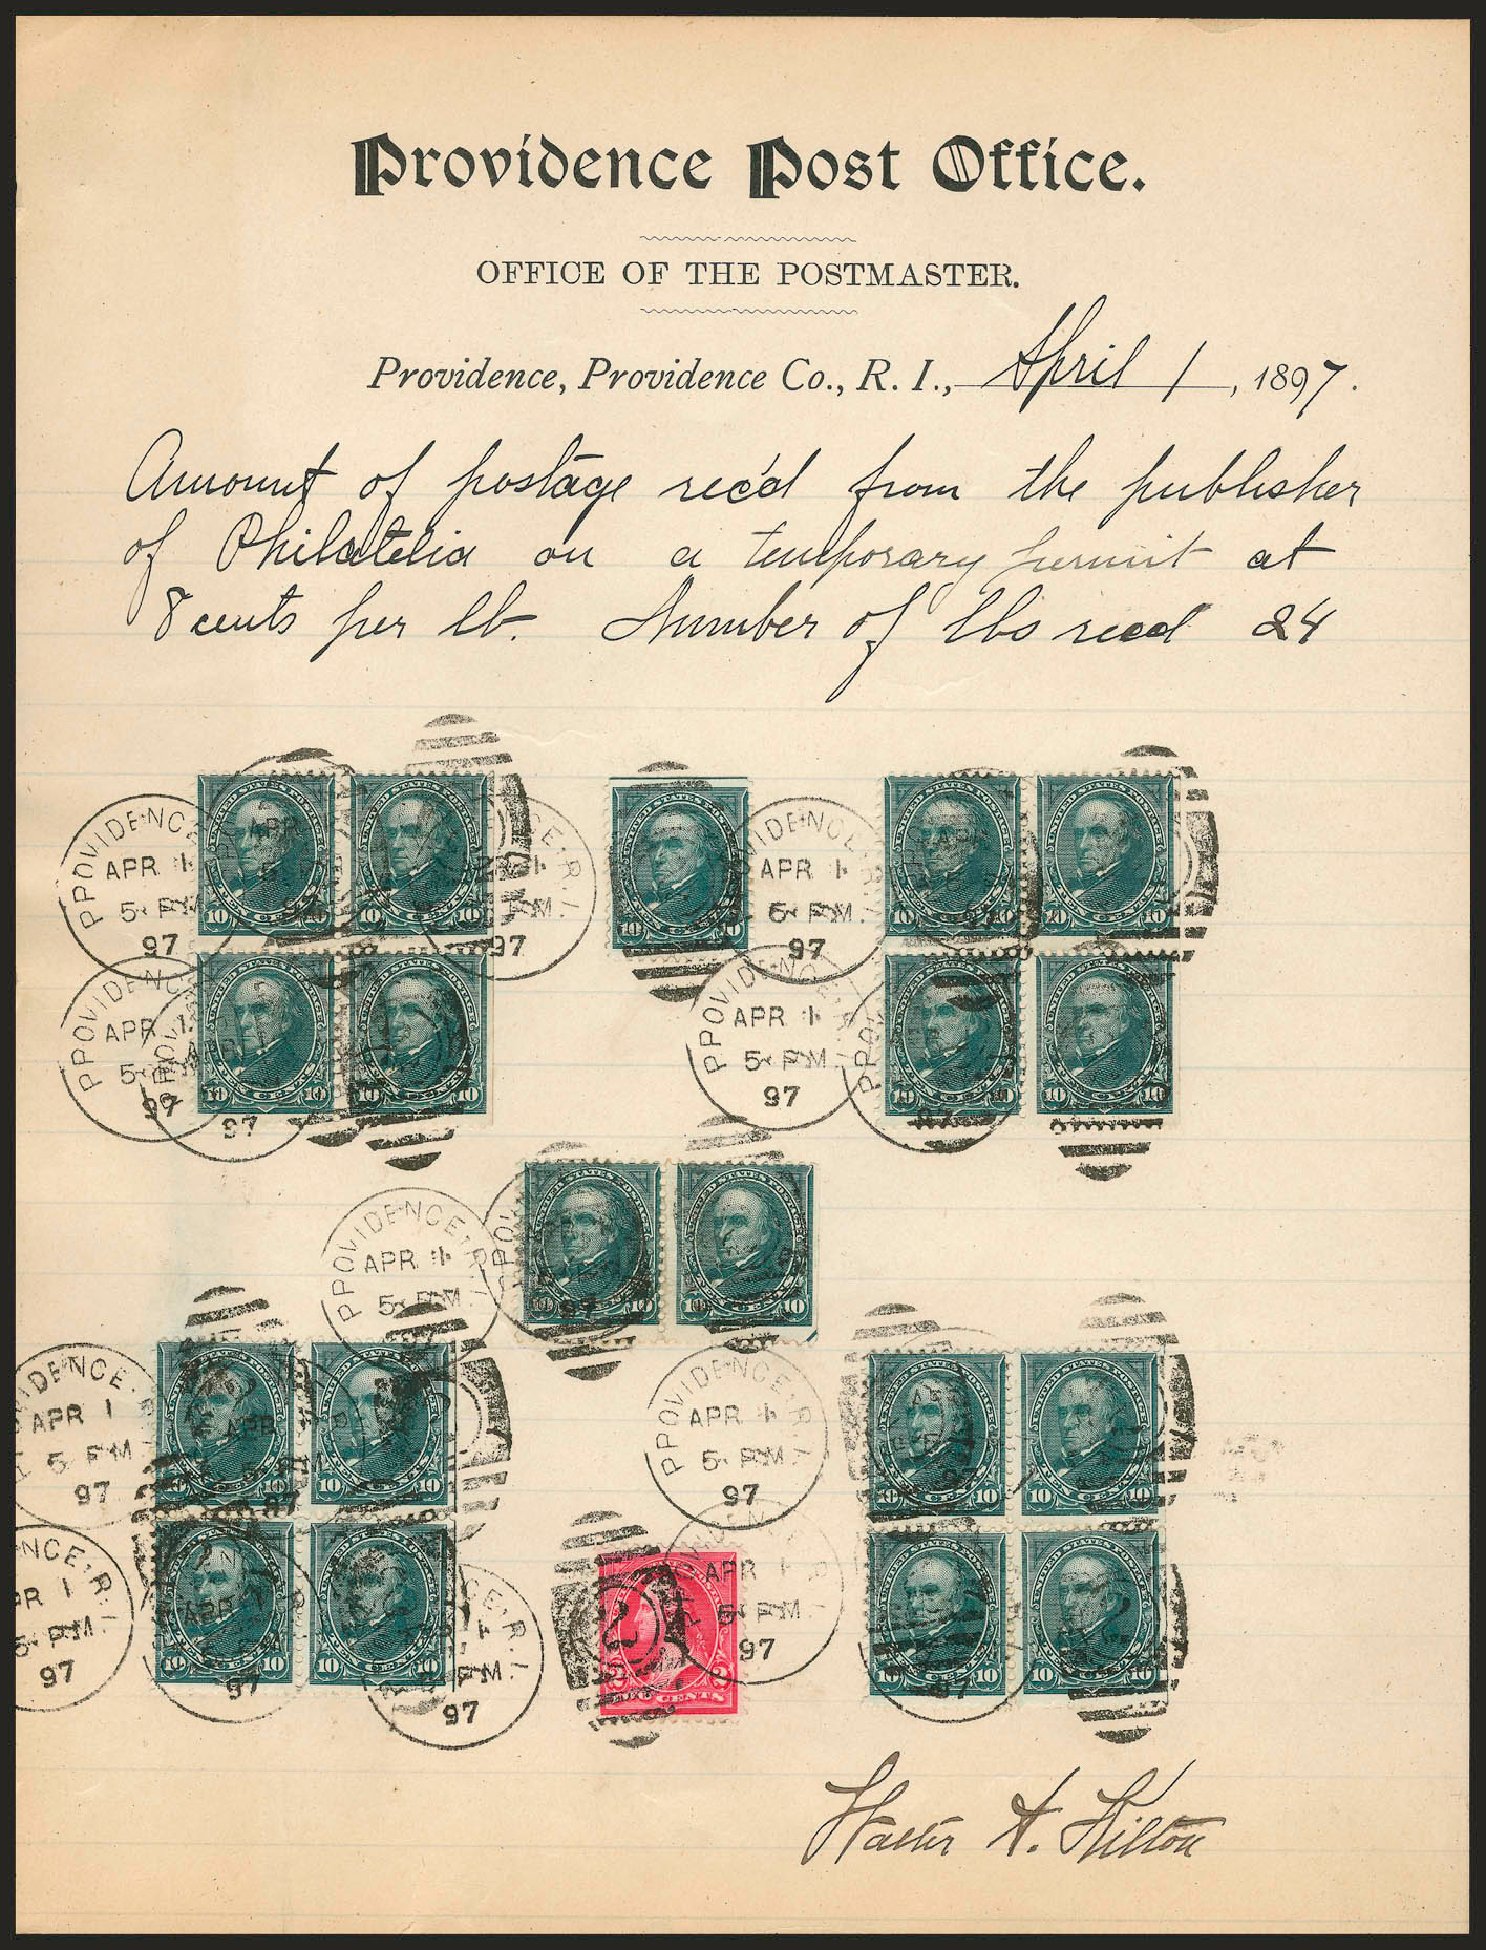 Providence Post Office.
OFFICE OF THE POSTMASTER.
Providence, Providence Co., R. I., April 1, 1897.
Amount of postage rec'd from the publisher
of Philatelia on a temporary permit at
8 cents per lb. Number of lbs recd 24
PROVIDENCE
APR 1
5 PM
97
PROVIDENCE
APR 1
5 PM
97
10 10
10 10
10 10
10 10
PROVIDENCE, R.I.
APR 1
5 PM.
97
PROVIDENCE
APR 1
5 PM.
97
PROVIDENCE, R.I.
APR 1
5 PM
97
UNITED STATES POSTAGE
10 TEN CENTS 10
PROVIDENCE
APR 1
5 PM
97
PROVIDENCE, R.I.
APR 1
5 PM.
97
2
TWO CENTS
APR 1
5 PM
97
Walter A. Kilton